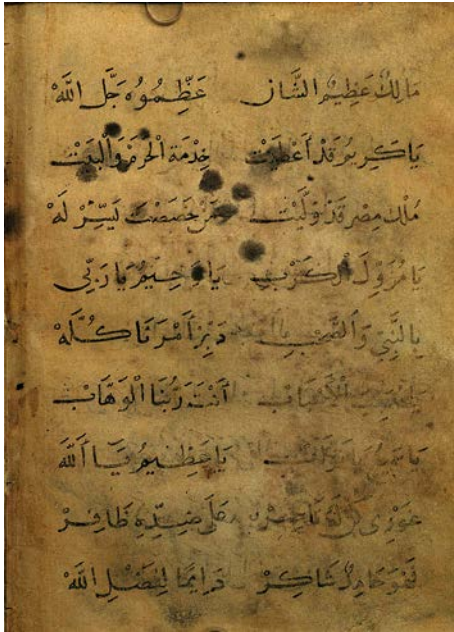 مَالِكْ عَظِيمِ الشَّانِ عَظِّمُوهُ جَلَّ اللَّهْ
يَا كَرِيمُ قَدْ أَعْطَيْتْ خِدْمَةَ الْحَرَمْ وَالْبَيْتْ
مُلْكَ مِصْرَ قَدْ وَلَّيْتْ مَنْ خَصَصْتَ يَسِّرْ لَهْ
يَا مُزِيلَ الْكَرْبِ يَا رَحِيمُ يَا رَبِّي
بِالنَّبِيِّ وَالصَّحْبِ دَبِّرْ أَمْرَنَا كُلَّهْ
أَنْتَ رَبُّنَا الْوَهَّابْ
يَا عَظِيمُ يَا أَللَّهْ
عَلَى ضِدِّهِ ظَافِرْ
شَاكِرْ دَايِمًا لِفَضْلِ اللَّهْ